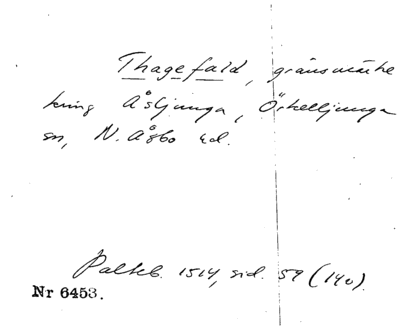 Thagefald, gränsmärke
kring Åsljunga, Örkelljunga
sn, N. Åsbo hd.
Palteb. 1514, sid. 59 (140).
Nr 6453.